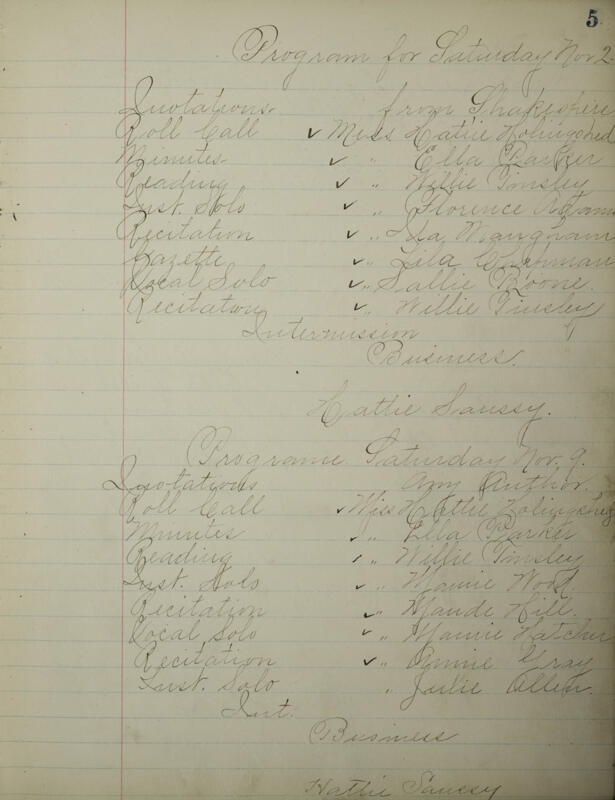 5
Program for Saturday Nov 2
Quotations from Shakespere
Roll Call ✓ Miss Hattie Holingshed
Minutes ✓ " Ella Parker
Reading ✓ " Willie Tinsley
Inst. Solo ✓ " Florence Adams
Recitation ✓ " Ida Mangham
Gazette ✓ " Lila Chapman
Vocal Solo ✓ " Sallie Boone.
Recitation ✓ " Willie Tinsley
Intermission
Business.
Hattie Saussy.
Programe Saturday Nov. 9.
Quotations Any Author.
Roll Call ✓ Miss Hattie Holingshed
Minutes ✓ " Ella Parker
Reading ✓ " Willie Tinsley
Inst. Solo ✓ " Mamie Wood.
Recitation ✓ " Maude Hill.
Vocal Solo ✓ " Mamie Hatcher
Recitation ✓ " Annie Gray
Inst. Solo " Julie Allen.
Int.
Business
Hattie Saussy